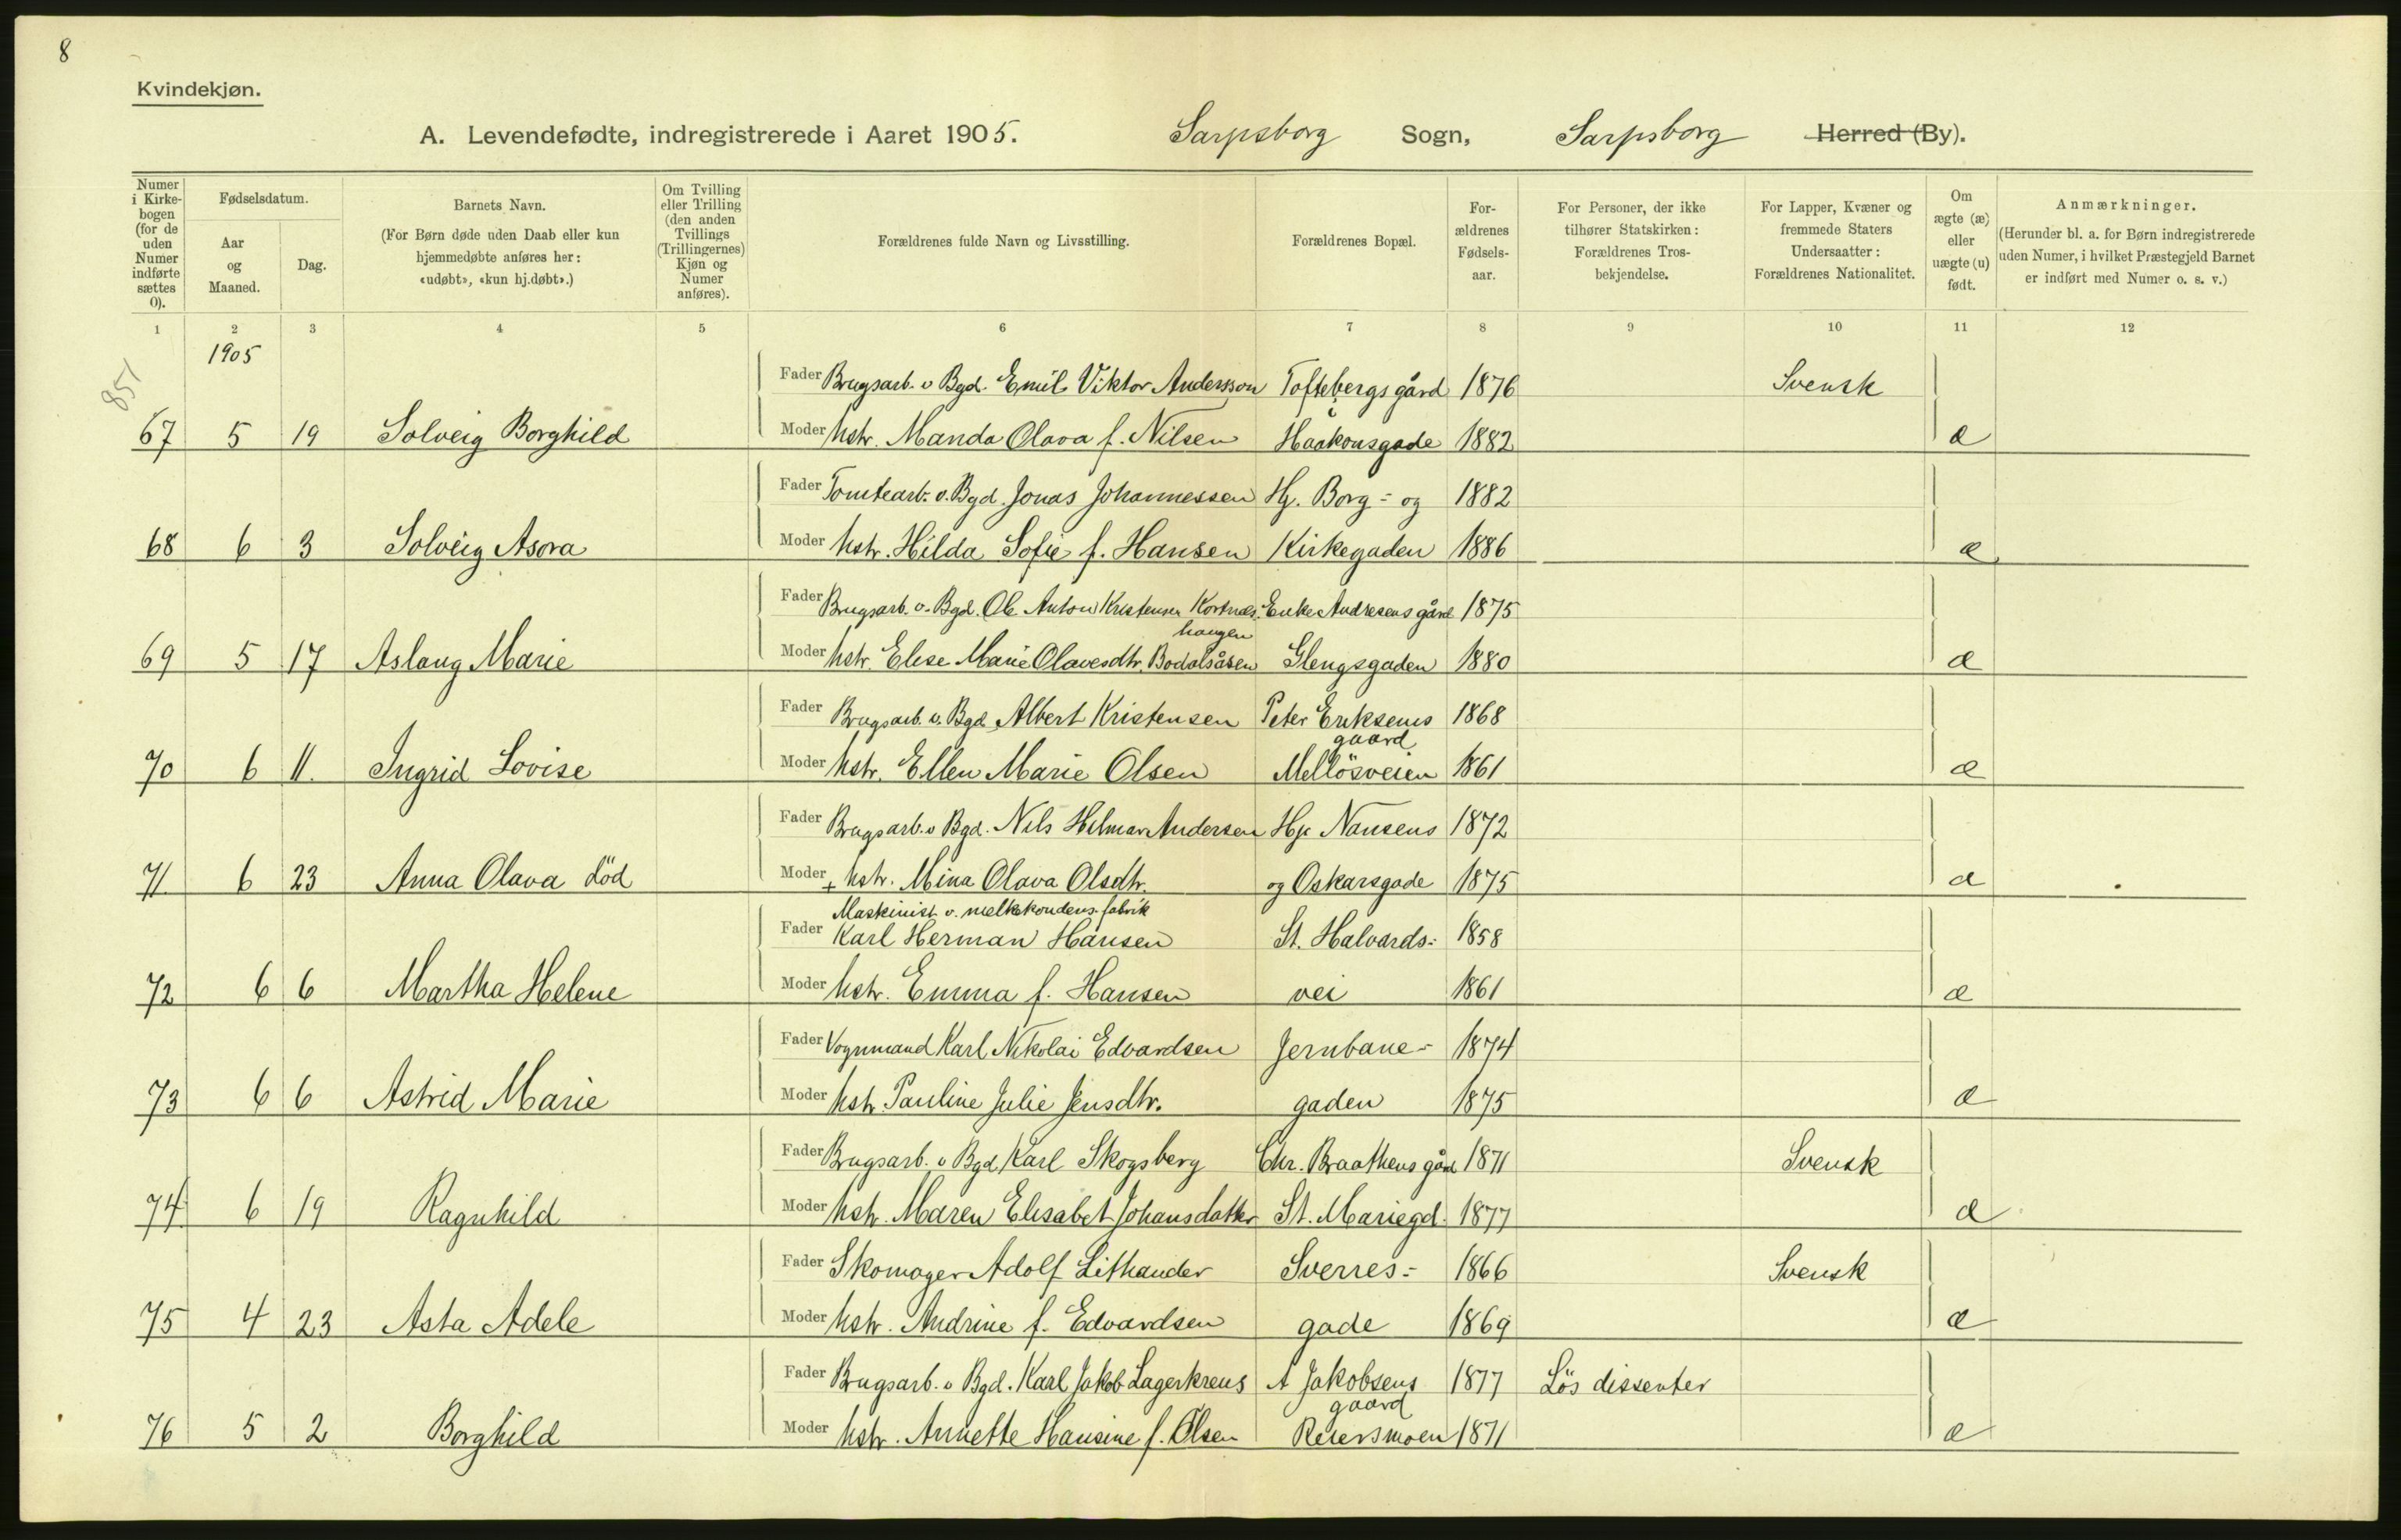 8
Kvindekjøn.
A. Levendefødte, indregistrerede i Aaret 1905. Sarpsborg Sogn, Sarpsborg Herred (By).
Numer i Kirkebogen (for de uden Numer indførte sættes 0).
Fødselsdatum.
Aar og Maaned.
Dag.
Barnets Navn.
(For Børn døde uden Daab eller kun hjemmedøbte anføres her: «udøbt», «kun hj.døbt».)
Om Tvilling eller Trilling (den anden Tvillings (Trillingernes) Kjøn og Numer anføres).
Forældrenes fulde Navn og Livsstilling.
Forældrenes Bopæl.
Forældrenes Fødselsaar.
For Personer, der ikke tilhører Statskirken: Forældrenes Trosbekjendelse.
For Lapper, Kvæner og fremmede Staters Undersaatter: Forældrenes Nationalitet.
Om ægte (æ) eller uægte (u) født.
Anmærkninger.
(Herunder bl. a. for Børn indregistrerede uden Numer, i hvilket Præstegjeld Barnet er indført med Numer o. s. v.)
1 2 3 4 5 6 7 8 9 10 11 12
1905
851
Fader Brugsarb. v Bgd. Emil Viktor Andersson Toftebergs gård 1876 Svensk
i
67 5 19 Solveig Borghild Moder Hstr. Manda Olava f. Nilsen Haakonsgade 1882 æ
Fader Tomtearb. v. Bgd. Jonas Johannessen Hj. Borg- og 1882
68 6 3 Solveig Asora Moder Hstr. Hilda Sofie f. Hansen Kirkegaden 1886 æ
Fader Brugsarb. v. Bgd. Ole Anton Kristensen Kortnæs. Enke Andresens gård 1875
haugen
69 5 17 Aslaug Marie Moder Hstr. Elise Marie Olavesdtr. Bodalsåsen Glengsgaden 1880 æ
Fader Brugsarb. v. Bgd. Albert Kristensen Peter Eriksens 1868
gaard
70 6 11. Ingrid Lovise Moder Hstr. Ellen Marie Olsen Mellösveien 1861 æ
Fader Brugsarb. v Bgd. Nils Hilmar Andersen Hj. Nansens 1872
71 6 23 Anna Olava död Moder + Hstr. Mina Olava Olsdtr. og Oskarsgade 1875 æ
Maskinist v. melkekondens. fabrik
Fader Karl Herman Hansen St. Halvards- 1858
72 6 6 Martha Helene Moder Hstr. Emma f. Hansen vei 1861 æ
Fader Vognmand Karl Nikolai Edvardsen Jernbane- 1874
73 6 6 Astrid Marie Moder Hstr. Pauline Julie Jensdtr. gaden 1875 æ
Fader Brugsarb. v Bgd Karl Skogsberg Chr. Braathens gård 1871 Svensk
74 6 19 Ragnhild Moder Hstr. Maren Elisabet Johansdatter St. Mariegd. 1877 æ
Fader Skomager Adolf Lithander Sverres- 1866 Svensk
75 4 23 Asta Adele Moder Hstr. Andrine f. Edvardsen gade 1869 æ
Fader Brugsarb. v Bgd. Karl Jakob Lagerkrens A Jakobsens 1877 Lös dissenter
gaard
76 5 2 Borghild Moder Hstr. Annette Hansine f. Olsen Reiersmoen 1871 æ